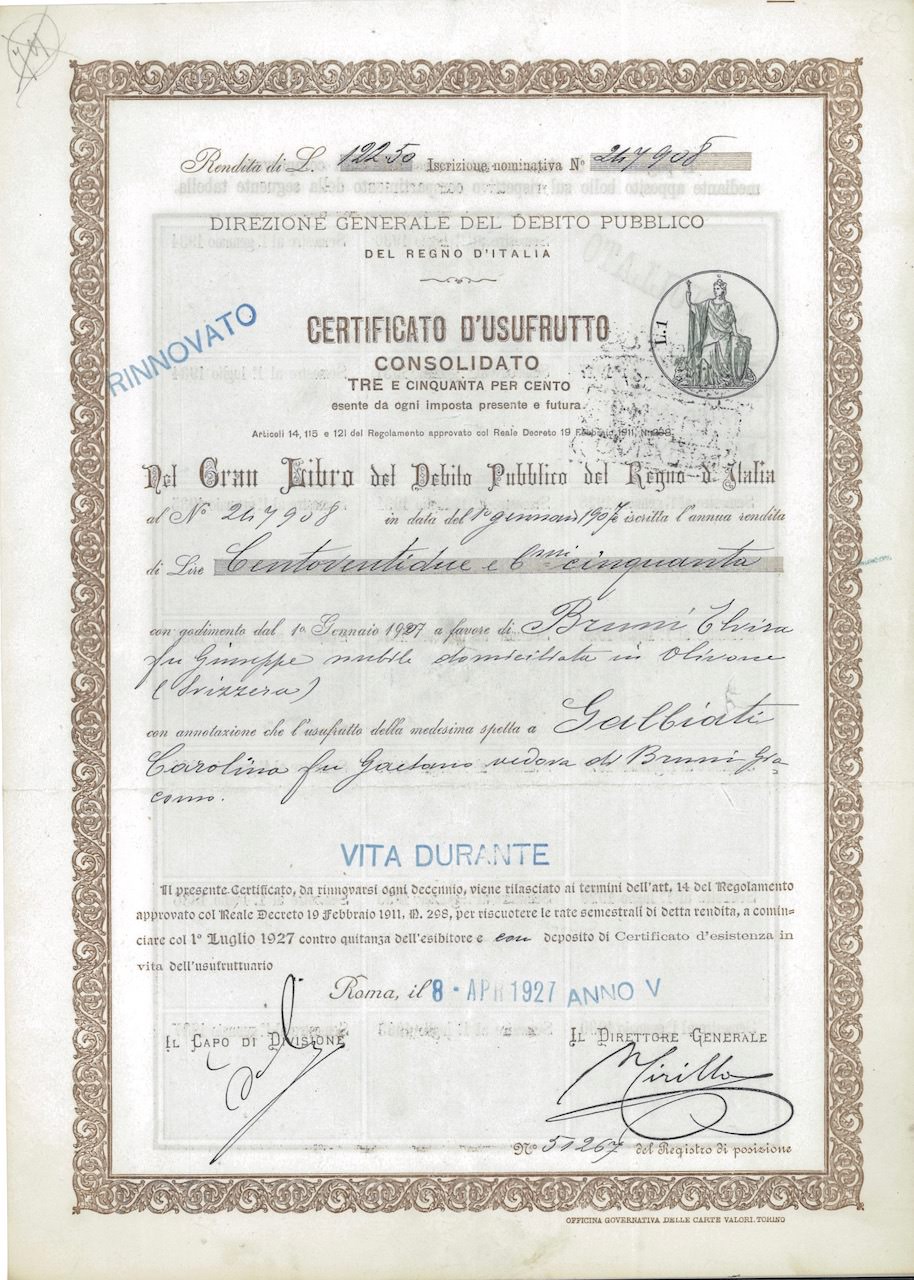 Rendita di L. 122.50 Iscrizione nominativa Nº 247908
DIREZIONE GENERALE DEL DEBITO PUBBLICO
DEL REGNO D'ITALIA
RINNOVATO
L.1
CERTIFICATO D'USUFRUTTO
CONSOLIDATO
TRE E CINQUANTA PER CENTO
esente da ogni imposta presente e futura.
Articoli 14, 115 e 121 del Regolamento approvato col Reale Decreto 19 Febbraio 1911, N. 298.
Nel Gran Libro del Debito Pubblico del Regno d'Italia
al Nº 247908 in data del 1º gennaio 1907 è iscritta l'annua rendita
di Lire Centoventidue e Cmi cinquanta
con godimento dal 1º Gennaio 1927 a favore di Bruni Elvira
fu Giuseppe nubile domiciliata in Olivone
(Svizzera)
con annotazione che l'usufrutto della medesima spetta a Galbiati
Carolina fu Gaetano vedova di Bruni Gia-
como.
VITA DURANTE
Il presente Certificato, da rinnovarsi ogni decennio, viene rilasciato ai termini dell'art. 14 del Regolamento
approvato col Reale Decreto 19 Febbraio 1911, N. 298, per riscuotere le rate semestrali di detta rendita, a comin-
ciare col 1º Luglio 1927 contro quitanza dell'esibitore e con deposito di Certificato d'esistenza in
vita dell'usufruttuario
Roma, il 8 - APR 1927 ANNO V
IL CAPO DI DIVISIONE
IL DIRETTORE GENERALE
Nº 51267 del Registro di posizione
OFFICINA GOVERNATIVA DELLE CARTE VALORI. TORINO